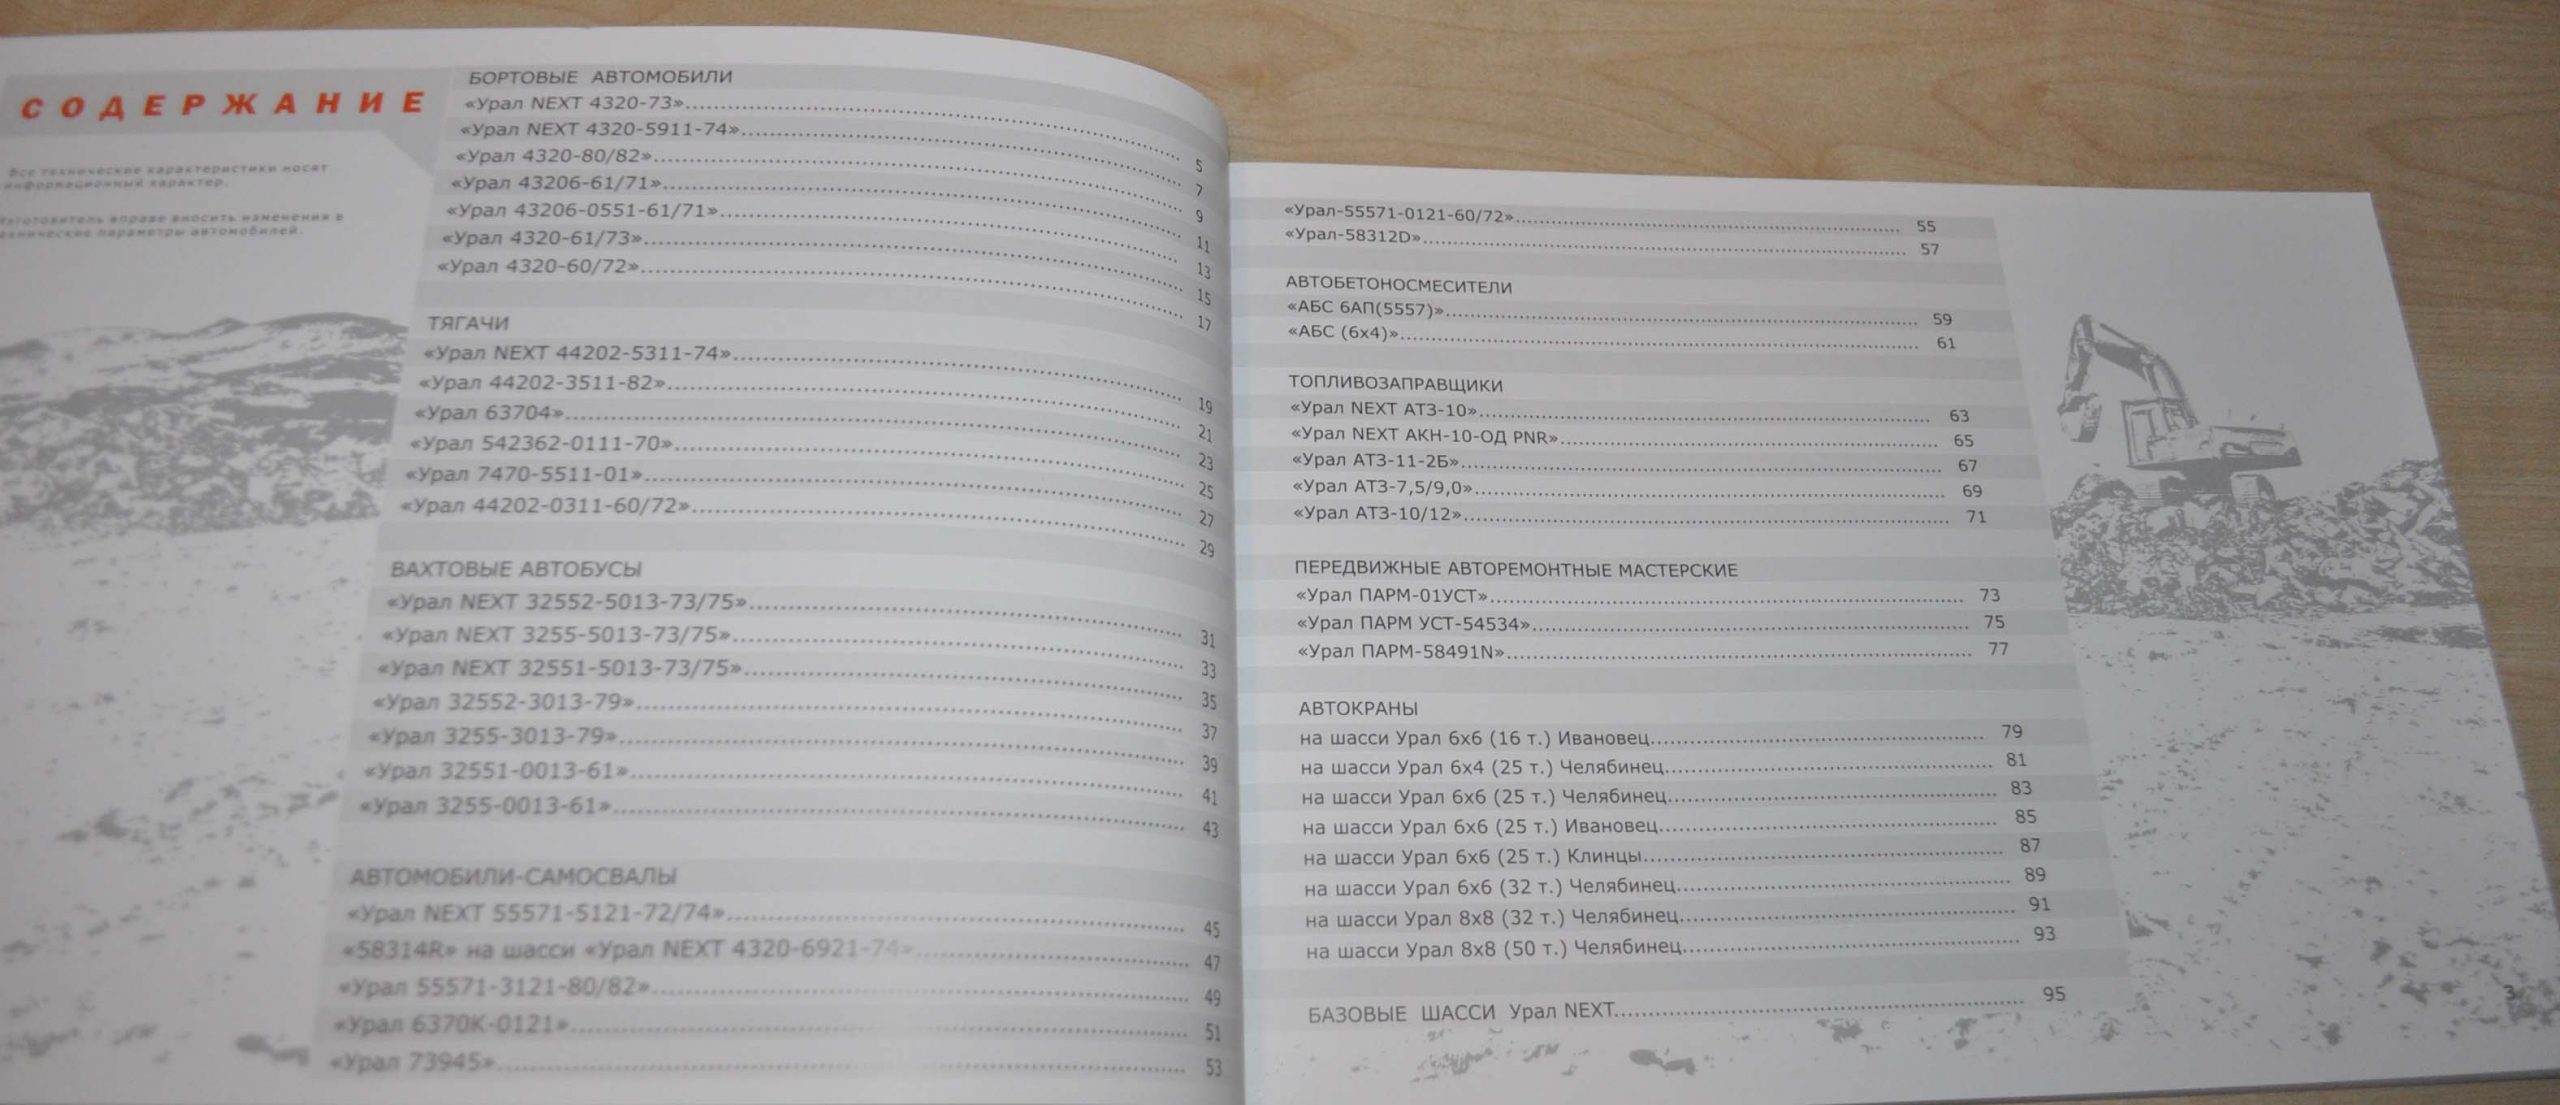 СОДЕРЖАНИЕ
Все технические характеристики носят
информационный характер.
Изготовитель вправе вносить изменения в
технические параметры автомобилей.
БОРТОВЫЕ АВТОМОБИЛИ
«Урал NEXT 4320-73»........ 5
«Урал NEXT 4320-5911-74»........ 7
«Урал 4320-80/82»........ 9
«Урал 43206-61/71»........ 11
«Урал 43206-0551-61/71»........ 13
«Урал 4320-61/73»........ 15
«Урал 4320-60/72»........ 17
ТЯГАЧИ
«Урал NEXT 44202-5311-74»........ 19
«Урал 44202-3511-82»........ 21
«Урал 63704»........ 23
«Урал 542362-0111-70»........ 25
«Урал 7470-5511-01»........ 27
«Урал 44202-0311-60/72»........ 29
ВАХТОВЫЕ АВТОБУСЫ
«Урал NEXT 32552-5013-73/75»........ 31
«Урал NEXT 3255-5013-73/75»........ 33
«Урал NEXT 32551-5013-73/75»........ 35
«Урал 32552-3013-79»........ 37
«Урал 3255-3013-79»........ 39
«Урал 32551-0013-61»........ 41
«Урал 3255-0013-61»........ 43
АВТОМОБИЛИ-САМОСВАЛЫ
«Урал NEXT 55571-5121-72/74»........ 45
«58314R» на шасси «Урал NEXT 4320-6921-74»........ 47
«Урал 55571-3121-80/82»........ 49
«Урал 6370К-0121»........ 51
«Урал 73945»........ 53
«Урал-55571-0121-60/72»........ 55
«Урал-58312D»........ 57
АВТОБЕТОНОСМЕСИТЕЛИ
«АБС 6АП(5557)»........ 59
«АБС (6х4)»........ 61
ТОПЛИВОЗАПРАВЩИКИ
«Урал NEXT АТЗ-10»........ 63
«Урал NEXT АКН-10-ОД PNR»........ 65
«Урал АТЗ-11-2Б»........ 67
«Урал АТЗ-7,5/9,0»........ 69
«Урал АТЗ-10/12»........ 71
ПЕРЕДВИЖНЫЕ АВТОРЕМОНТНЫЕ МАСТЕРСКИЕ
«Урал ПАРМ-01УСТ»........ 73
«Урал ПАРМ УСТ-54534»........ 75
«Урал ПАРМ-58491N»........ 77
АВТОКРАНЫ
на шасси Урал 6х6 (16 т.) Ивановец........ 79
на шасси Урал 6х4 (25 т.) Челябинец........ 81
на шасси Урал 6х6 (25 т.) Челябинец........ 83
на шасси Урал 6х6 (25 т.) Ивановец........ 85
на шасси Урал 6х6 (25 т.) Клинцы........ 87
на шасси Урал 6х6 (32 т.) Челябинец........ 89
на шасси Урал 8х8 (32 т.) Челябинец........ 91
на шасси Урал 8х8 (50 т.) Челябинец........ 93
БАЗОВЫЕ ШАССИ Урал NEXT........ 95
3